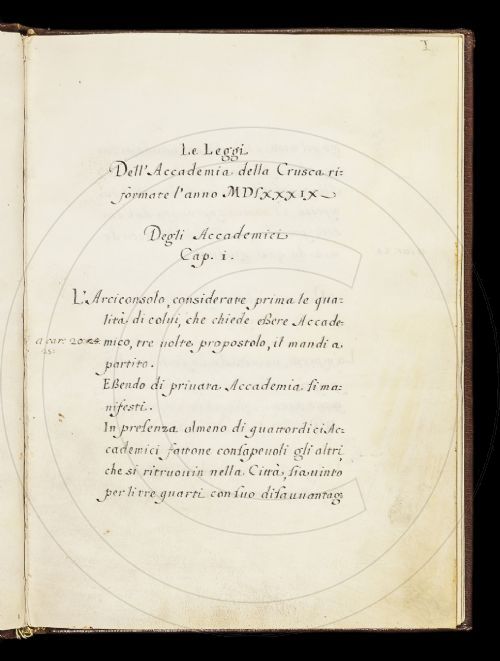 I
Le Leggi
Dell'Accademia della Crusca ri:
formate l'anno MDLXXXIX
Degli Accademici
Cap. 1.
L'Arciconsolo, considerate prima le qua:
lità di colui, che chiede eßere Accade:
a car: 20.
mico, tre uolte propostolo, il mandi a
25:
partito.
Eßendo di priuata Accademia si ma:
nifesti.
In presenza almeno di quattordici Ac:
cademici fattone consapeuoli gli altri,
che si ritruouin nella Città, sia uinto
per li tre quarti con suo disauuantag: